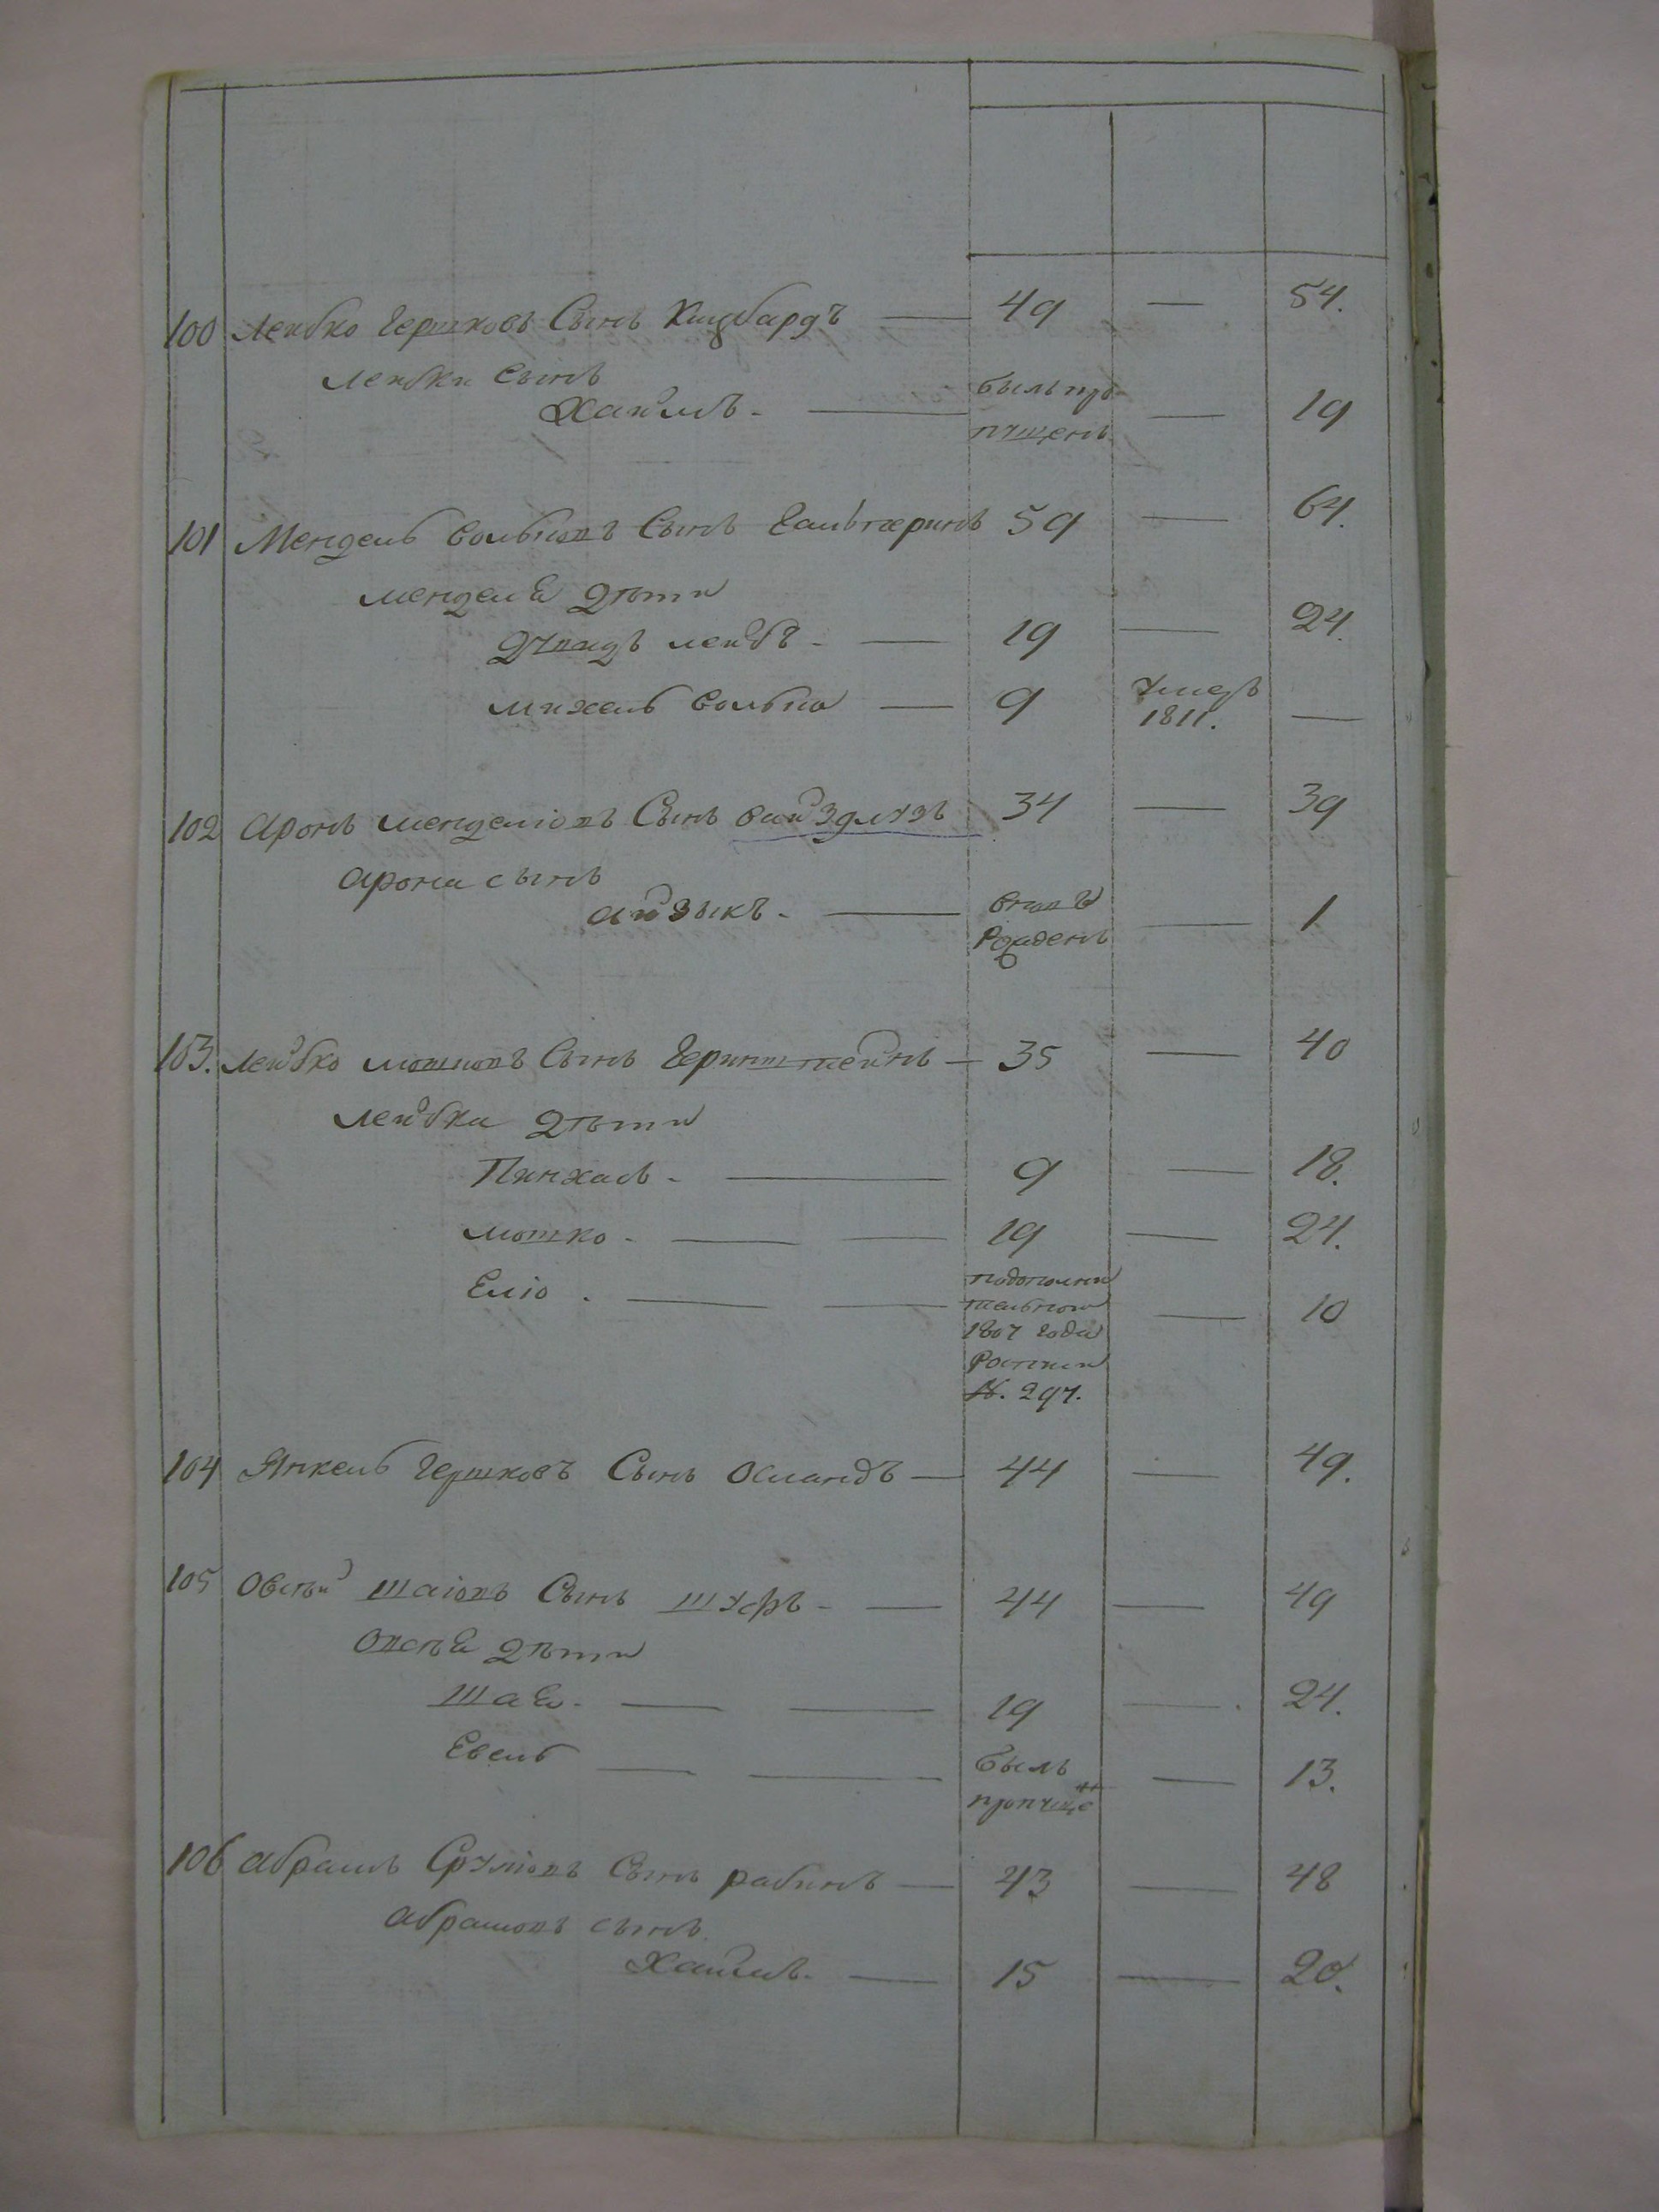 100 Лейбко Гершковъ Сынъ — 49 — 54.
Лейбки Сынъ
Хаймъ. — былъ пропущенъ. — 19
101 Мендель Вольковъ Сынъ Гальперинъ 59 — 64.
Менделя дѣти
Лейбъ — 19 — 24.
Михель Волько — 9 умеръ 1811. —
102 Аронъ Менделіовъ Сынъ 34 — 39
Арона сынъ
Айзыкъ. — вновь Рожденъ — 1
103. Лейбко Мошковъ Сынъ Геринштейнъ — 35 — 40
Лейбка дѣти
Пинхасъ. — 9 — 18.
Мошко. — — 19 — 24.
Еліо. — — подополнительной 1807 года N. 297. — 10
104 Янкель Гершковъ Сынъ Османдъ — 44 — 49.
105 Овсѣй Шаіовъ Сынъ Шуфъ — 44 — 49
Овсѣя дѣти
Шая. — — 19 — 24.
Евель — — былъ пропущенъ — 13.
106 Абрамъ Сруліовъ Сынъ Рабинъ — 43 — 48
Абрамовъ сынъ.
Хаймъ. — 15 — 20.